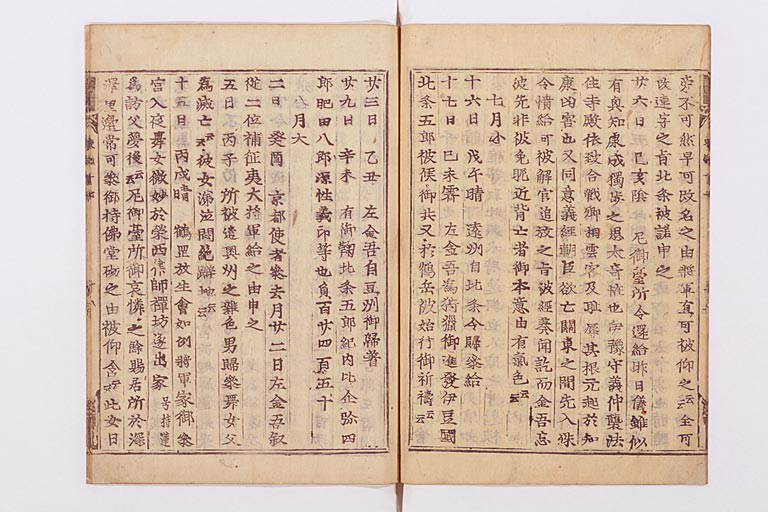 旁不可然早可改名之由將軍直可被仰之云云全可
改連字之旨北条被諾申之
廿六日 己亥陰 尼御臺所令還給昨日儀雖似
有興知康成獨歩之思太奇怪也伊豫守義仲襲法
住寺殿依致合戰卿相雲客及耻辱其根元起於知
康凶害也又同意義經朝臣欲亡關東之間先人殊
令憤給可被解官追放之旨被經奏聞訖而金吾忘
彼先非被免昵近背亡者御本意由有氣色云云
七月小
十六日 戊午晴 遠州自北条令歸參給
十七日 己未霽 左金吾爲狩獵御進發伊豆國
北条五郎被候御共又於鶴岳被始行御祈禱云云
廿三日 乙丑 左金吾自豆州御歸著
廿九日 辛未 有御鞠北条五郎紀内比企弥四
郎肥田八郎源性義印等也負百廿四百五十
八月大
二日 癸酉 京都使者參去月廿二日左金吾叙
從二位補征夷大將軍給之由申之
五日 丙子 所被遣奥州之雜色男歸參舞女父
爲滅亡云云彼女涕泣悶絶躃地云云
十五日 丙戌晴 鶴罡放生會如例將軍家御參
宮入夜舞女微妙於榮西律師禪坊遂出家 号持蓮
爲訪父夢後云云尼御臺所御哀憐之餘賜居所於深
澤里邊常可參御持佛堂砌之由被仰含云云此女日